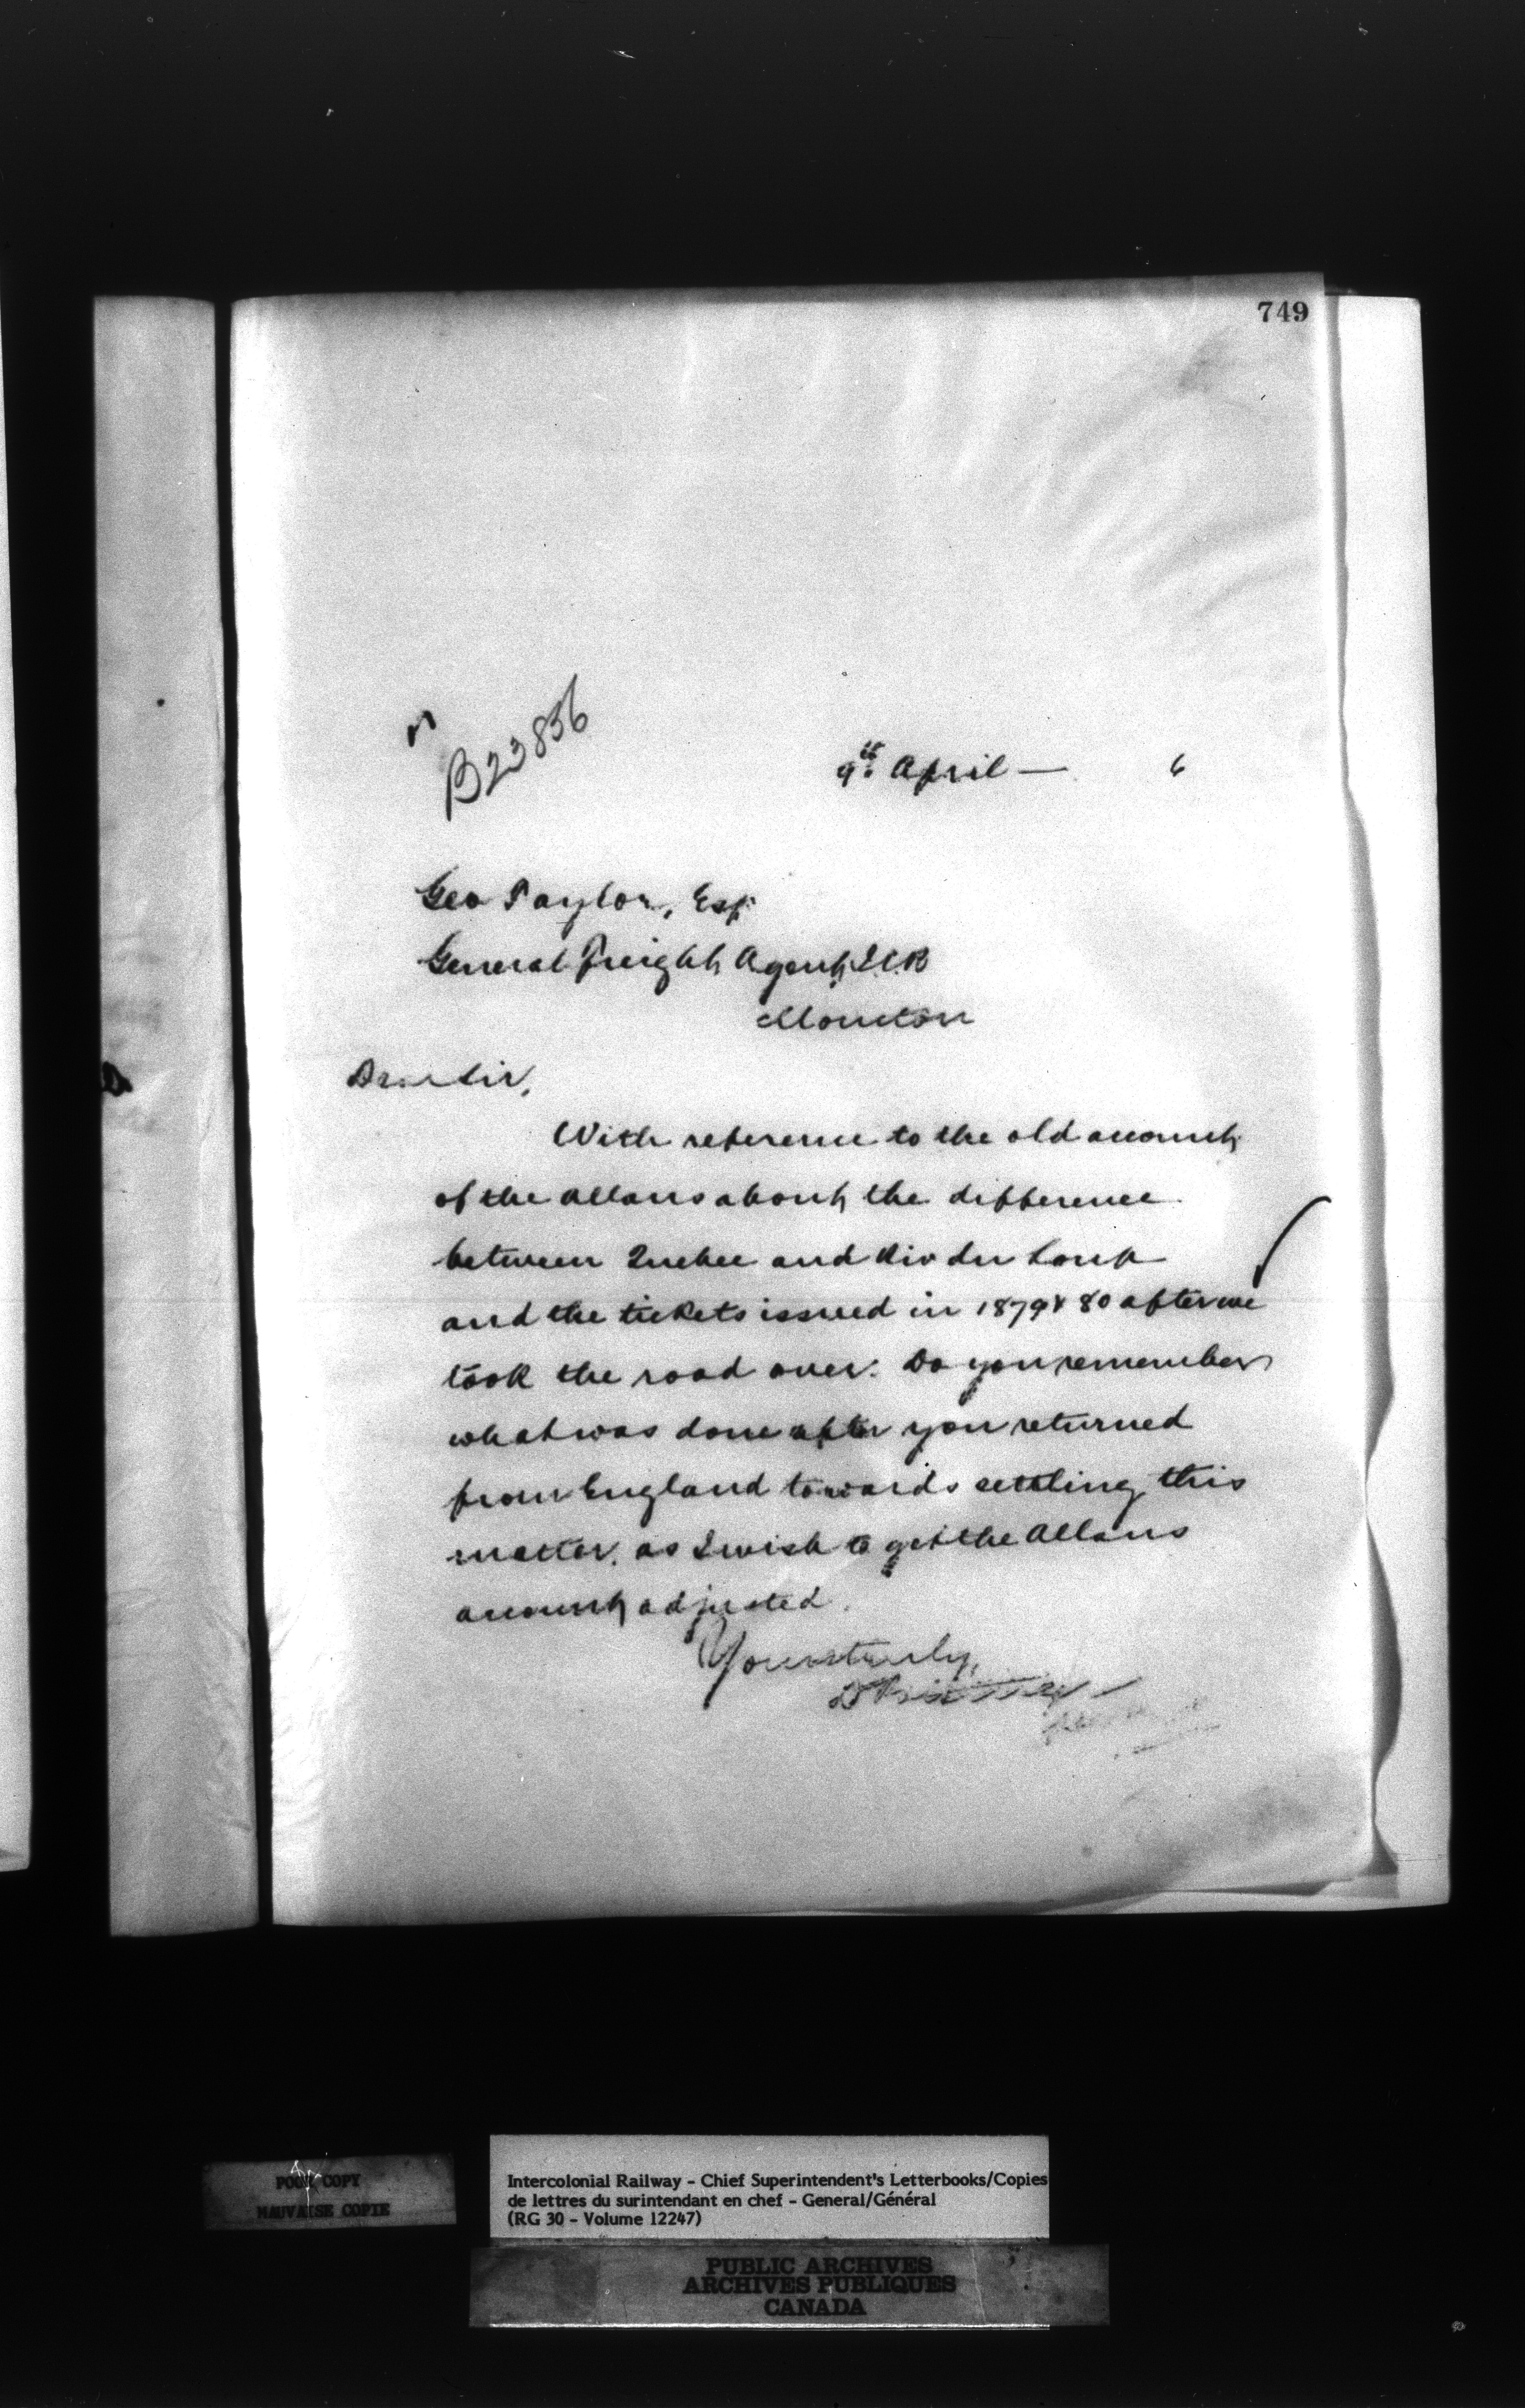 749
B23856
9th April — 6
Geo Taylor, Esq.
General Freight Agent, I.C.R
Moncton
Dear Sir,
With reference to the old account
of the Allans about the difference
between Quebec and Riv du Loup
and the tickets issued in 1879 & 80 after we
took the road over. Do you remember
what was done after you returned
from England towards settling this
matter, as I wish to get the Allans
account adjusted.
Yours truly,
POOR COPY
MAUVAISE COPIE
Intercolonial Railway - Chief Superintendent's Letterbooks/Copies
de lettres du surintendant en chef - General/Général
(RG 30 - Volume 12247)
PUBLIC ARCHIVES
ARCHIVES PUBLIQUES
CANADA